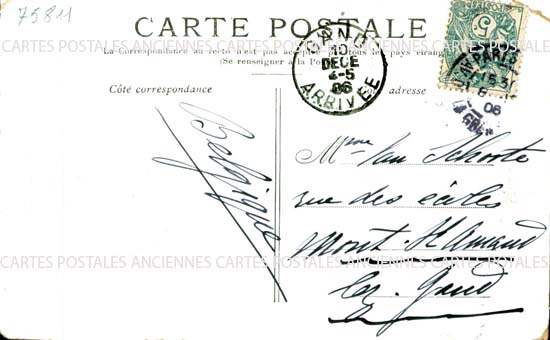 75811
CARTE POSTALE
La Correspondance au recto n'est pas acceptée tous les pays étrangers
(Se renseigner à la Poste)
GAND
10
DECE
4-5
06
ARRIVÉE
PARIS
06
5
Côté correspondance
adresse
CARTES POSTALES ANCIENNES CARTES POSTALES ANCIENNES CARTES POSTALES
Belgique
Mme Van
rue des écoles
Mont St Amand
lez-Gand
CARTES POSTALES ANCIENNES CARTES POSTALES ANCIENNES CARTES POTALES